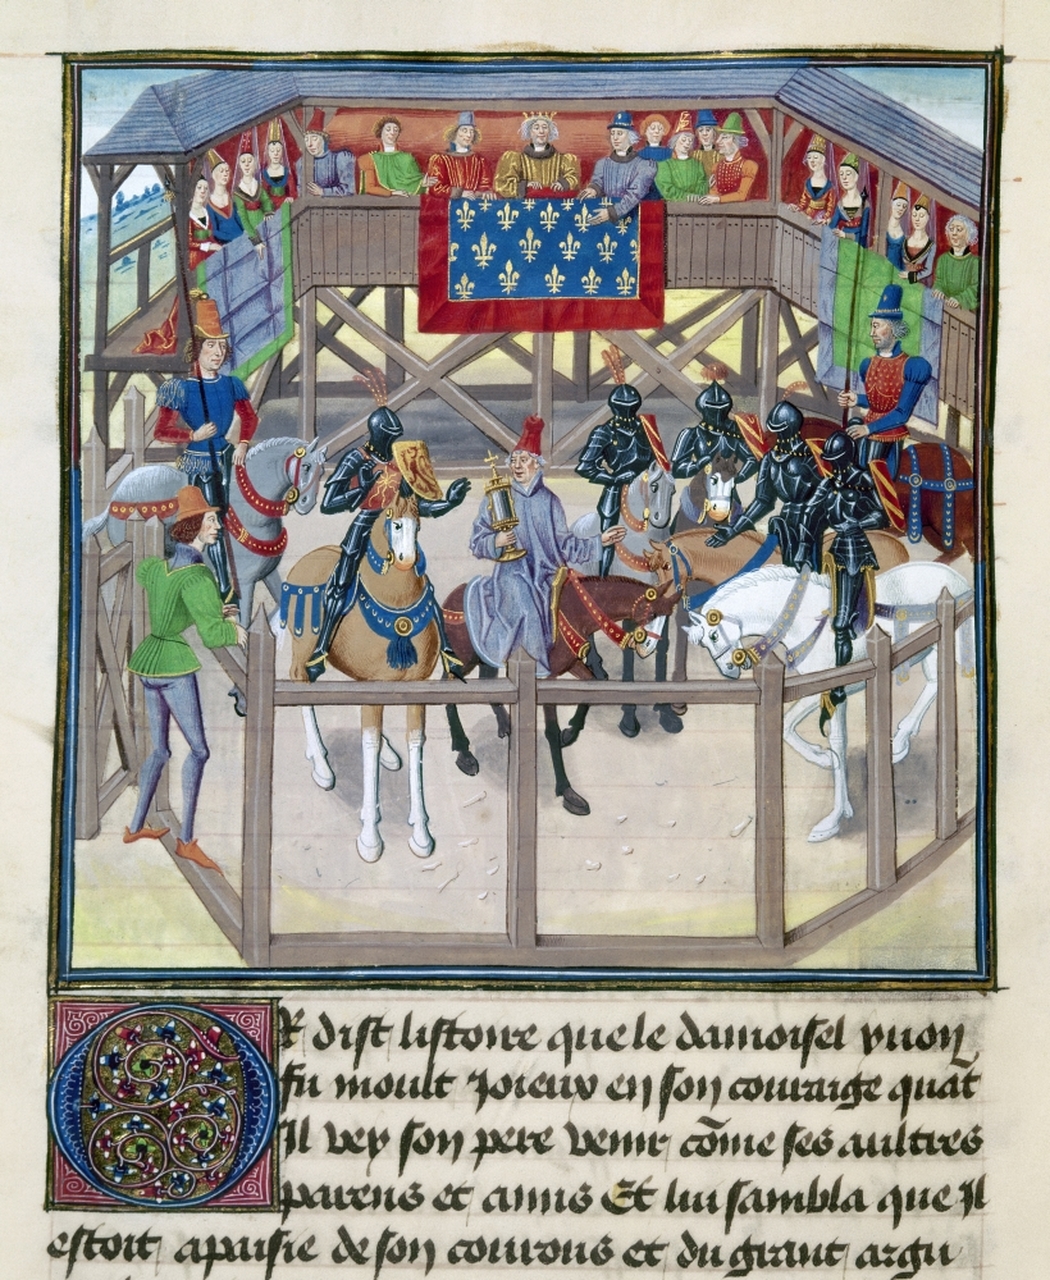 OR dist listoire que le damoisel yuon
fu moult Joieux en son couraige quāt
Il vey son pere venir cōme ses aultres
parens et amis Et lui sambla que Il
estoit apaisie de son courous et du grant argu